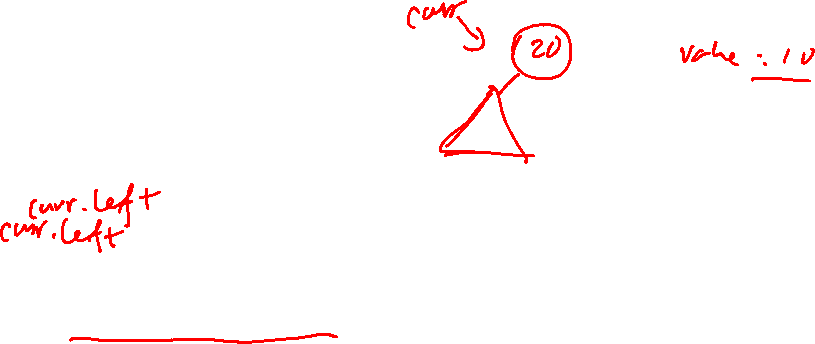 curr
20
value : 10
curr.left
curr.left